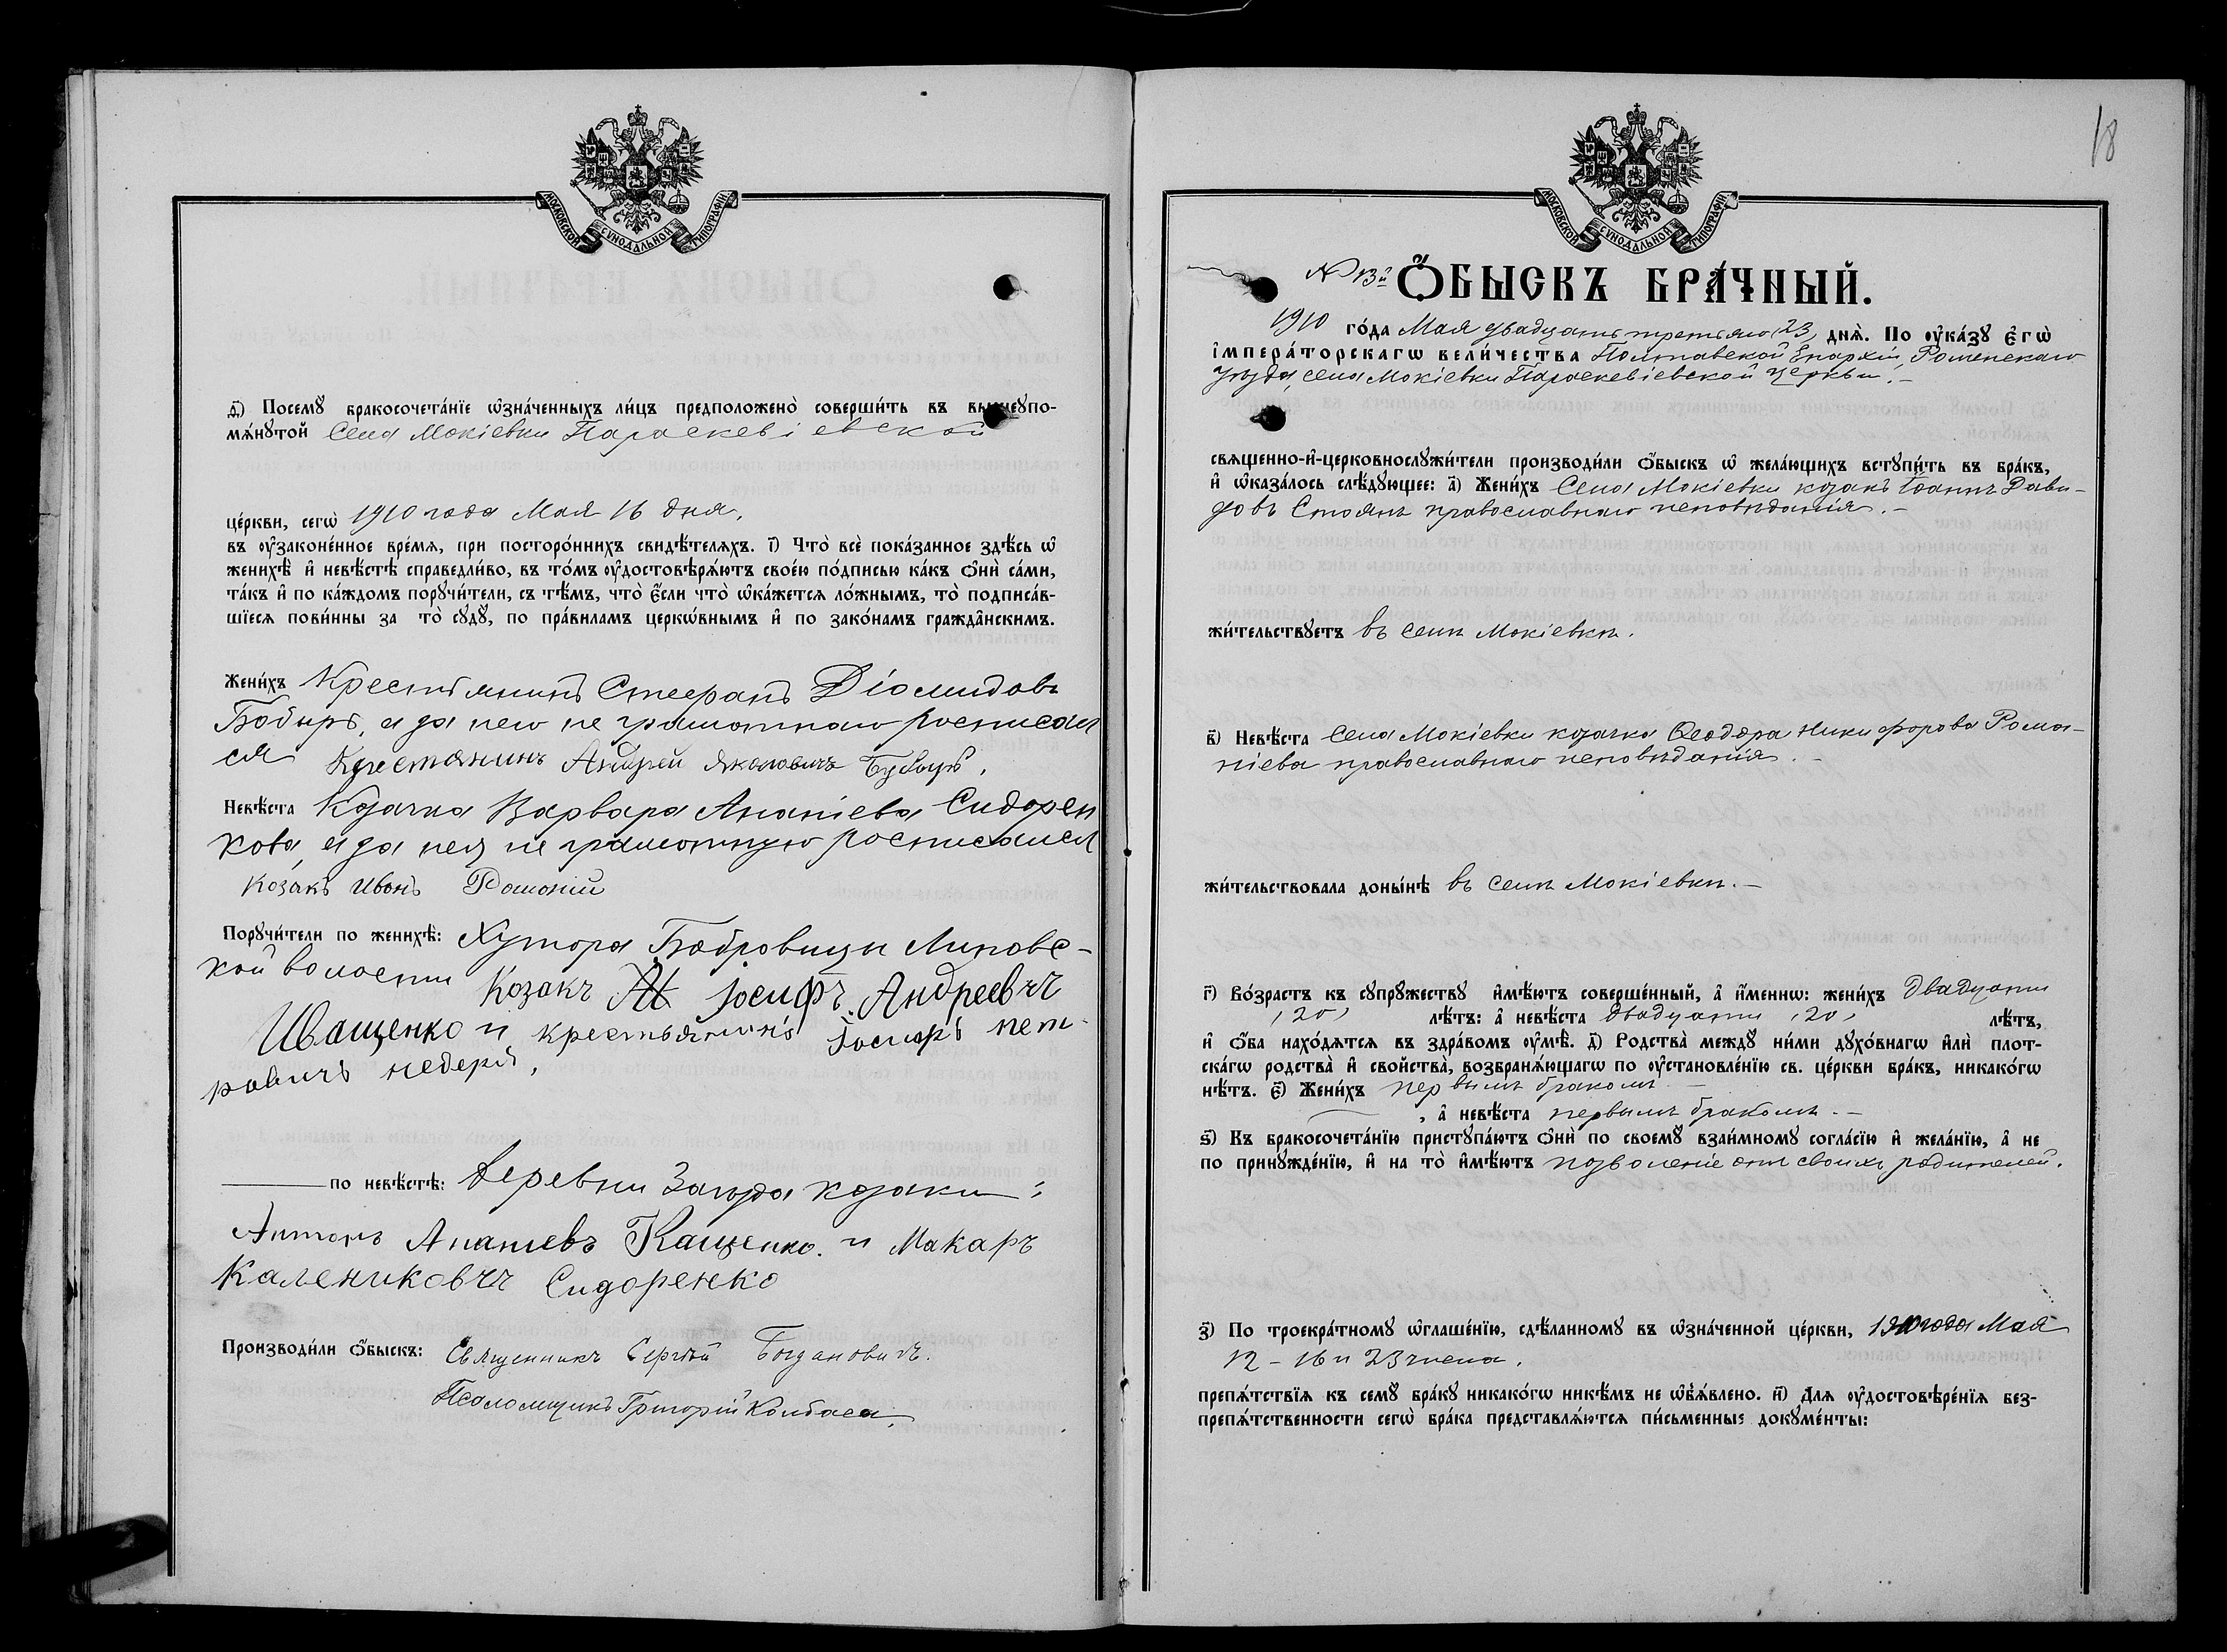 МОСКОВСКОЙ СѴНОДАЛЬНОЙ ТИПОГРАФІИ
Ѳ҃) Посемꙋ̀ бракосочета́нїе ѡ҆зна́ченныхъ ли́цъ предположено̀ соверши́ть въ вышеꙋпо-
мѧ́нꙋтой Села Мокіевки Параскевіевской
це́ркви, сегѡ̀ 1910 года Мая 16 дня.
въ ᲂу҆законе́нное вре́мѧ, при посторо́ннихъ свидѣ́телѧхъ. І҃) Что̀ всѐ пока́занное здѣ́сь ѡ҆
женихѣ̀ и҆ невѣ́стѣ справедли́во, въ то́мъ ᲂу҆достовѣрѧ́ютъ свое́ю по́дписью ка́къ ѻ҆нѝ са́ми,
та́къ и҆ по ка́ждомъ порꙋчи́тели, съ тѣ́мъ, что̀ є҆́сли что̀ ѡ҆ка́жетсѧ ло́жнымъ, то̀ подписа́в-
шїесѧ пови́нны за то̀ сꙋдꙋ̀, по пра́виламъ церкѡ́внымъ и҆ по зако́намъ гражда̑нскимъ.
Жени́хъ Крестьянинъ Стефанъ Діомидовъ
Бобырь, а за него не грамотнаго росписал
ся Крестянинъ Андрей Яковлевичъ Бубырь.
Невѣ́ста Козачка Варвара Ананіева Сидорен
кова, а за нея не грамотную росписался
козакъ Иванъ Романій
Порꙋчи́тели по женихѣ̀: Хутора Бобровицы Липовс-
кой волости Козакъ Іосифъ Андреевчъ
Иващенко и крестьянинъ Іосифъ пет-
ровичъ недерій,
по невѣ́стѣ: Деревни Загузда козаки:
Антонъ Ананіевъ Кащенко. и Макаръ
Калениковчъ Сидоренко
Производи́ли ѻ҆́быскъ: Священникъ Сергѣй Богдановичъ.
Псаломщикъ Григорій Колбаса.
18
МОСКОВСКОЙ СѴНОДАЛЬНОЙ ТИПОГРАФІИ
№ 13й Ѻ҆́БЫСКЪ БРА́ЧНЫЙ.
1910 го́да Мая двадцать третьяго, 23, днѧ̀. По ᲂу҆ка́зꙋ Є҆гѡ̀
І҆мпера́торскагѡ вели́чества Полтавской Епархіи, Роменскаго
Уѣзда, села Мокіевки Параскевіевской церкви.-
свѧщенно-и҆-церковнослꙋжи́тели производи́ли ѻ҆́быскъ ѡ҆ жела́ющихъ встꙋпи́ть въ бра́къ,
и҆ ѡ҆каза́лось слѣ́дꙋющее: А҃) Жени́хъ Села Мокіевки козакъ Іоаннъ Дави-
довъ Стоянъ православнаго исповѣданія.-
жи́тельствꙋетъ въ селѣ Мокіевкѣ.
В҃) Невѣ́ста Села Мокіевки козачка Ѳеодора Никифорова Рома-
ніева православнаго исповѣданія.-
жи́тельствовала доны́нѣ въ селѣ Мокіевкѣ.-
Г҃) Во́зрастъ къ сꙋпрꙋ́жествꙋ и҆мѣ́ютъ соверше́нный, а҆ и҆́меннѡ: жени́хъ двадцати
,20, лѣ́тъ: а҆ невѣ́ста двадцати ,20, лѣ́тъ,
и҆ ѻ҆́ба нахо́дѧтсѧ въ здра́вомъ ᲂу҆мѣ̀. Д҃) Родства̀ междꙋ̀ ни́ми дꙋхо́внагѡ и҆лѝ плот-
ска́гѡ родства̀ и҆ сво́йства̀, возбранѧ́ющагѡ по ᲂу҆становле́нїю св. це́ркви бра́къ, никако́гѡ
нѣ́тъ. Є҃) Жени́хъ первымъ бракомъ -
, а҆ невѣ́ста первымъ бракомъ.-
Ѕ҃) Къ бракосочета́нїю пристꙋпа́ютъ ѻ҆нѝ по своемꙋ̀ взаи́мномꙋ согла́сїю и҆ жела́нїю, а҆ не
по принꙋжде́нїю, и҆ на то̀ и҆мѣ́ютъ позволеніе отъ своихъ родителей.
З҃) По троекра́тномꙋ ѡ҆глаше́нїю, сдѣ́ланномꙋ въ ѡ҆зна́ченной це́ркви, 1910 года Мая
12 - 16 и 23 числа.
препѧ́тствїѧ къ семꙋ̀ бра́кꙋ никако́гѡ никѣ́мъ не ѡ҆б̾ѧ́влено. И҃) Длѧ ᲂу҆достовѣре́нїѧ без-
препѧ́тственности сегѡ̀ бра́ка представлѧ́ютсѧ пи́сьменные докꙋме́нты: